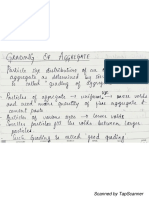 GRADING OF AGGREGATE
Particle size distribution of an
aggregate as determined by
is called grading of aggregate
Particles of aggregate → uniform → more voids
and need more quantity of fine aggregate &
cement paste
Particles of various sizes → lesser voids
smaller particles fill the voids between larger
particles
Scanned by TapScanner